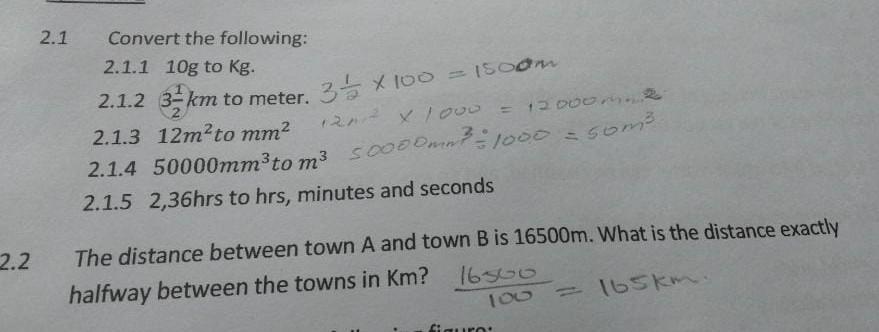 2.1 Convert the following:
2.1.1 10g to Kg.
2.1.2 3 1/2 km to meter. 3 1/2 × 100 = 1500m
2.1.3 12m² to mm² 12m² × 1000 = 12000mm²
2.1.4 50000mm³ to m³ 50000mm³ ÷ 1000 = 50m³
2.1.5 2,36hrs to hrs, minutes and seconds
2.2 The distance between town A and town B is 16500m. What is the distance exactly
halfway between the towns in Km? 16500/100 = 165km.
figure: